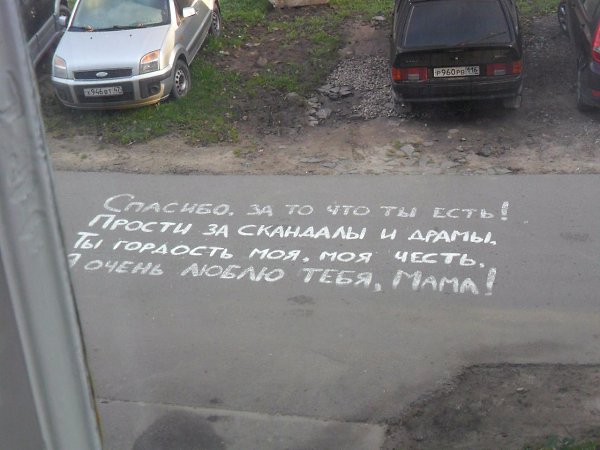 Х946ВТ
Р960РВ 116
Спасибо, за то что ты есть!
Прости за скандалы и драмы,
Ты гордость моя, моя честь,
Я очень люблю тебя, Мама!